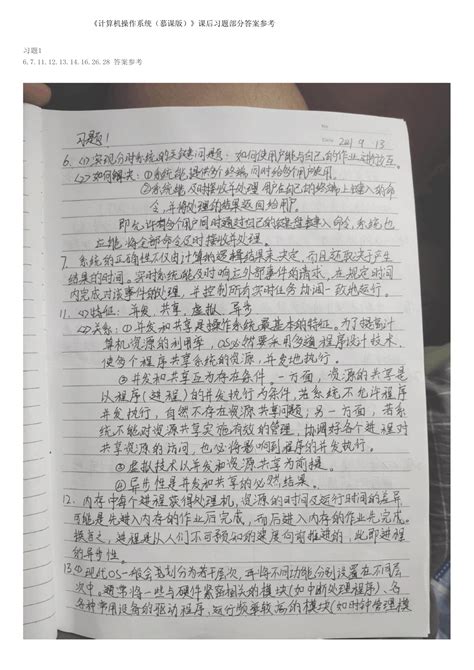 《计算机操作系统（慕课版）》课后习题部分答案参考
习题1
6.7.11.12.13.14.16.26.28 答案参考
No.
Date 2021 9. 13
习题1
6. (1)实现分时系统的关键问题：如何使用户能与自己的作业进行交互。
(2)如何解决：①系统能提供多个终端,同时给多个用户使用。
②系统能及时接收并处理用户在自己的终端上键入的命
令,并将处理的结果返回给用户。
即允许有多个用户同时通过自己的键盘键入命令,系统也
应能将全部命令及时接收并处理。
7. 系统的正确性不仅由计算的逻辑结果来决定,而且还取决于产生
结果的时间。实时系统能及时响应外部事件的请求,在规定时间
内完成对该事件的处理,并控制所有实时任务协调一致地运行。
11. (1)特征：并发、共享、虚拟、异步
(2)关系：①并发和共享是操作系统最基本的特征。为了提高计
算机资源的利用率,OS必然要采用多道程序设计技术,
使多个程序共享系统的资源,并发地执行。
②并发和共享互为存在条件。一方面,资源的共享是
以程序(进程)的并发执行为条件,若系统不允许程序
并发执行,自然不存在资源共享问题；另一方面,若系
统不能对资源共享实施有效的管理,协调好各个进程对
共享资源的访问,也必将影响到程序的并发执行。
③虚拟技术以并发和资源共享为前提。
④异步性是并发和共享的必然结果。
12. 内存中每个进程获得处理机,资源的时间及运行时间的差异
可能是先进入内存的作业后完成,而后进入内存的作业先完成。
换言之,进程是以人们不可预知的速度向前推进的,此即进程
的异步性。
13.(1)现代OS一般会划分为若干层次,再将不同功能分别设置在不同层
次中。通常将一些与硬件紧密相关的模块(如中断处理程序)、各
种常用设备的驱动程序、运行频率较高的模块(如时钟管理模